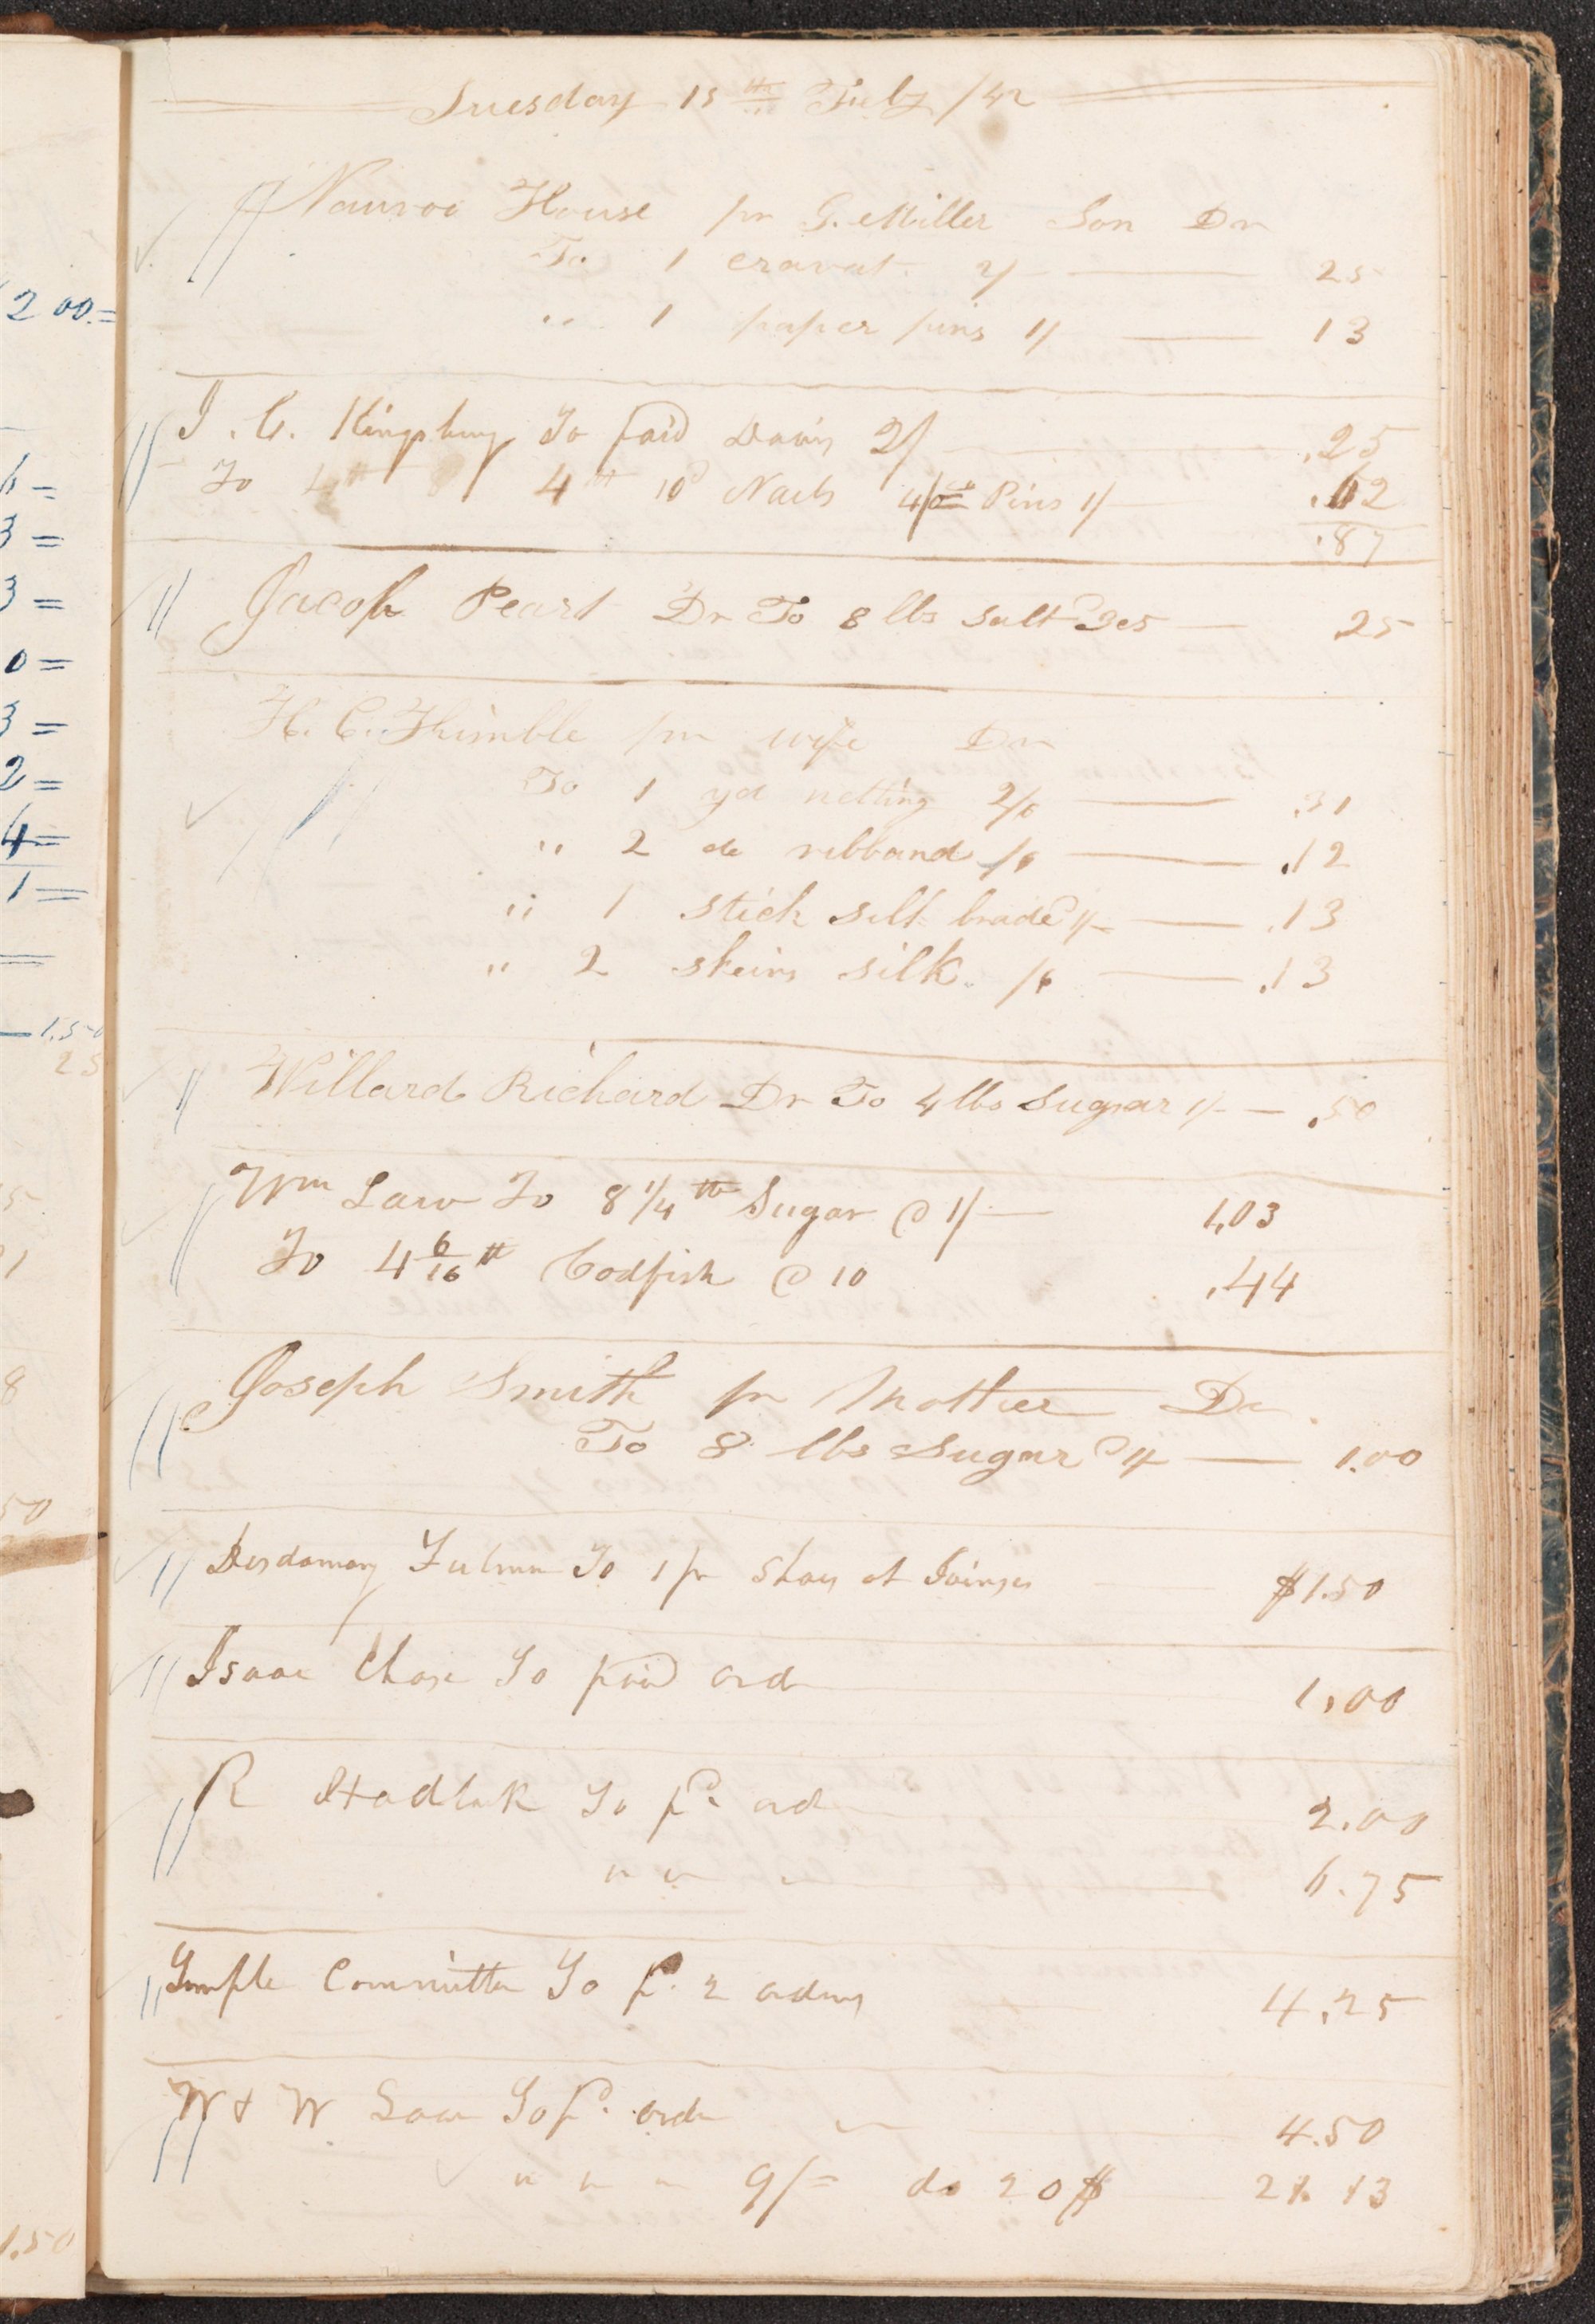 200.=
3=
3=
0=
3=
2=
4=
1=
1.50
25
8
50
1.50
Tuesday 15th Feby /42
Nauvoo House pr G. Miller Son Dr
To 1 cravat 2/ — 25
" 1 paper pins 1/ — 13
J. C. Kingsbury To paid Davis 2/ .25
To 4 lb 10d Nails 4/ Pins 1/ .62
.87
Jacob Peart Dr To 8 lbs salt 3c5 — 25
H. C. Kimble pr wife Dr
To 1 yd netting 2/6 — .31
" 2 do ribband /6 — .12
" 1 stick silk brade 1/ — .13
" 2 skeins silk /6 — .13
Willard Richard Dr To 4 lbs Sugar 1/ — .50
Wm Law To 8 1/4 lb Sugar @ 1/ — 1.03
To 4 6/16 lb Codfish @ 10 .44
Joseph Smith pr Mother Dr
To 8 lbs Sugar 1/ — 1.00
Desdamony Fulmer To 1 pr Shoes at $1.50
Isaac Chase To paid ord 1.00
R Hadlock To pd ord 2.00
" " " 6.75
Temple Committee To pd 2 orders 4.25
W & W Law To pd ord 4.50
" " " 9/= do 20$ 21.13